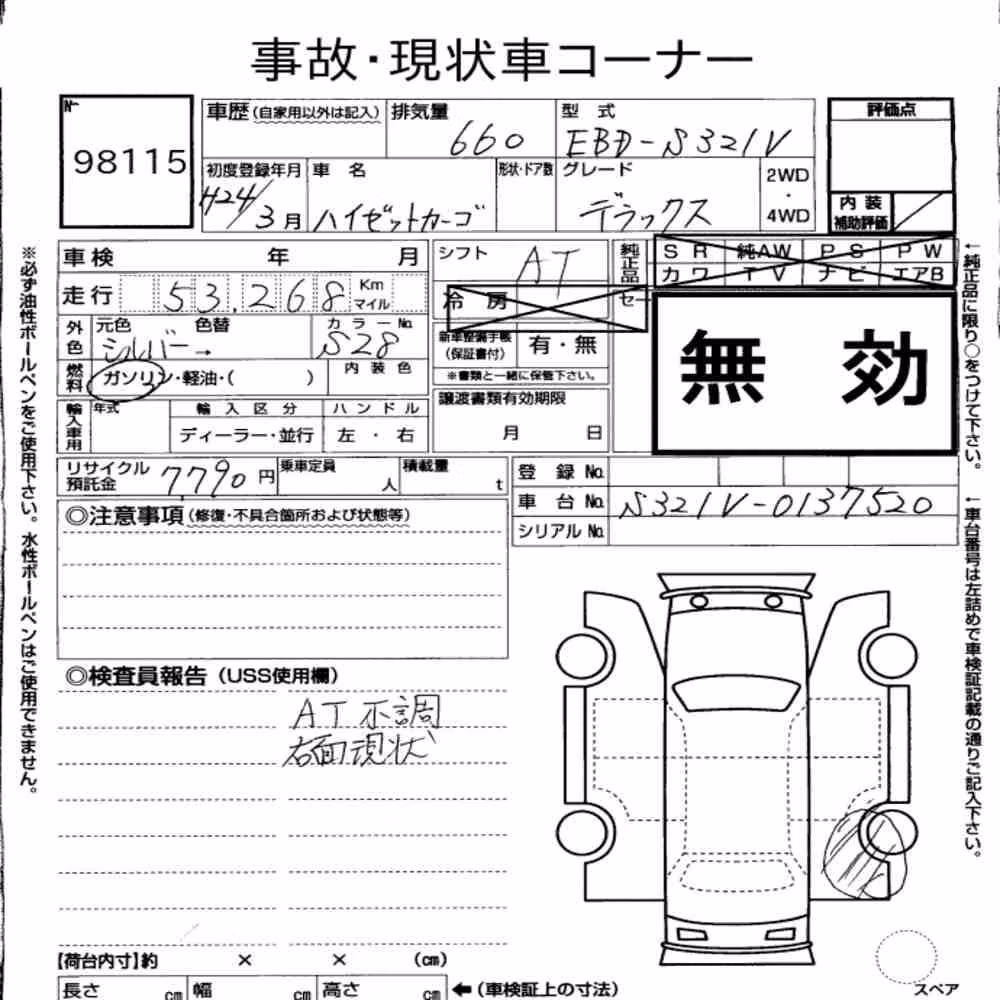 事故・現状車コーナー
№
98115
車歴(自家用以外は記入)
排気量
660
型 式
EBD-S321V
評価点
初度登録年月
H24/3月
車 名
ハイゼットカーゴ
形状・ドア数
グレード
デラックス
2WD
・
4WD
内 装
補助評価
車検 年 月
シフト
AT
純正品
SR 純AW PS PW
カワ TV ナビ エアB
走行
53,268
Km
マイル
冷 房
セー
無 効
外色
元色 色替
シルバー→
カラー№
S28
新車整備手帳
(保証書付)
有・無
※書類と一緒に保管下さい。
燃料
ガソリン・軽油・( )
内 装 色
譲渡書類有効期限
月 日
輸入車用
年式
輸 入 区 分
ディーラー・並行
ハ ン ド ル
左 ・ 右
リサイクル
預託金
7,790円
乗車定員
人
積載量
t
登 録 №
車 台 №
S321V-0137520
シリアル №
◎注意事項(修復・不具合箇所および状態等)
◎検査員報告(USS使用欄)
AT不調
右面現状
【荷台内寸】約 × × (cm)
長さ cm
幅 cm
高さ cm
←(車検証上の寸法)
スペア
※必ず油性ボールペンをご使用下さい。水性ボールペンはご使用できません。
←純正品に限り○をつけて下さい。
←車台番号は左詰めで車検証記載の通りご記入下さい。